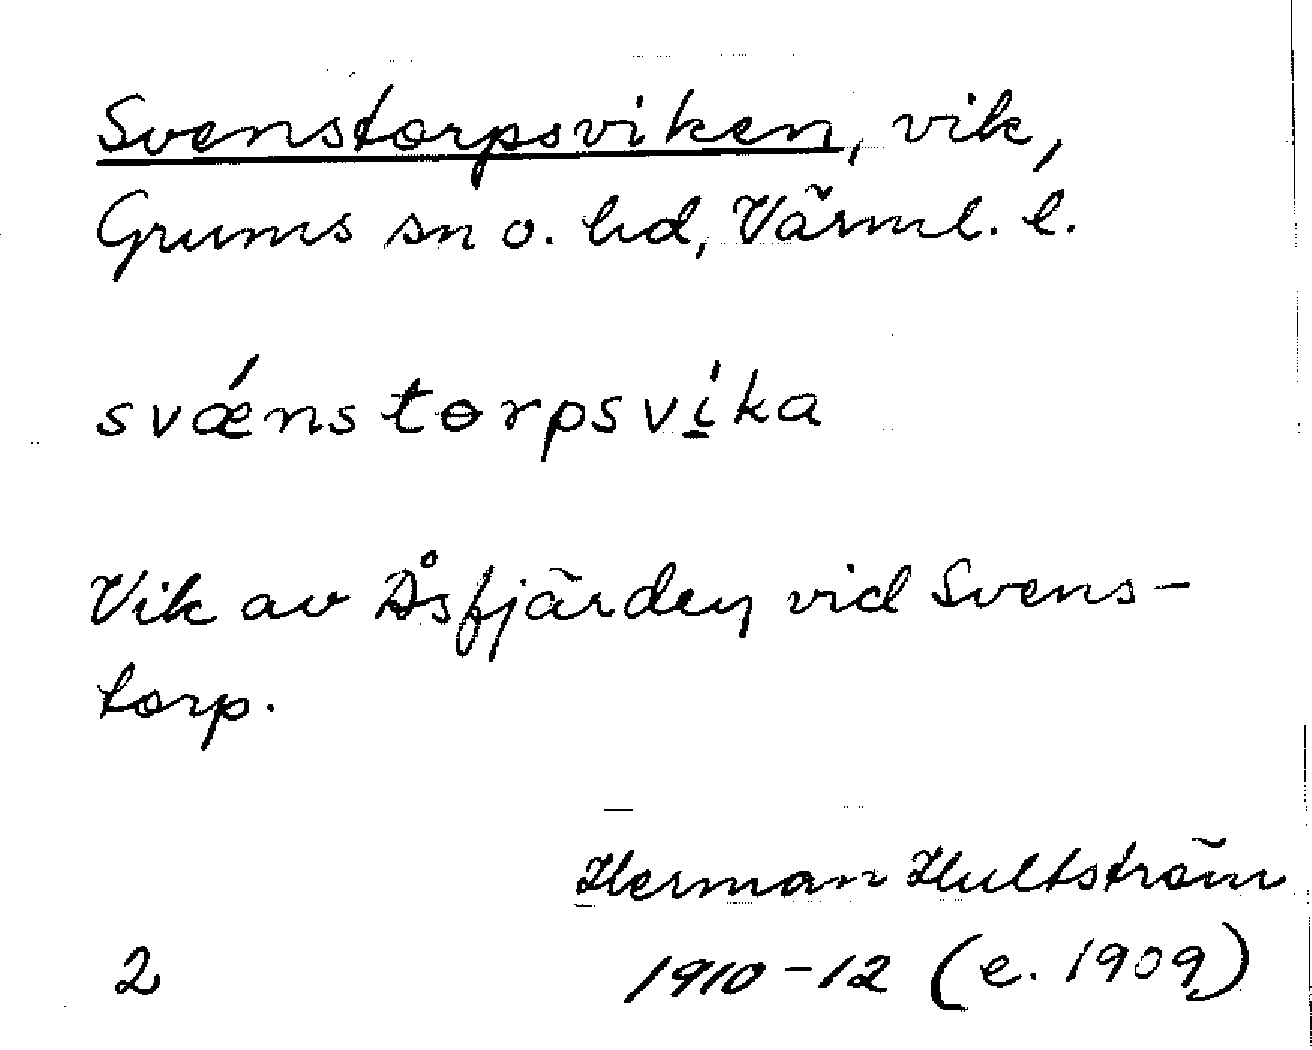 Svenstorpsviken, vik,
Grums sn o. hd, Värml. l.
svǽnstɵrpsvi̱̍ka
Vik av Åsfjärden vid Svens-
torp.
Herman Hultström
2 1910-12 (e. 1909)